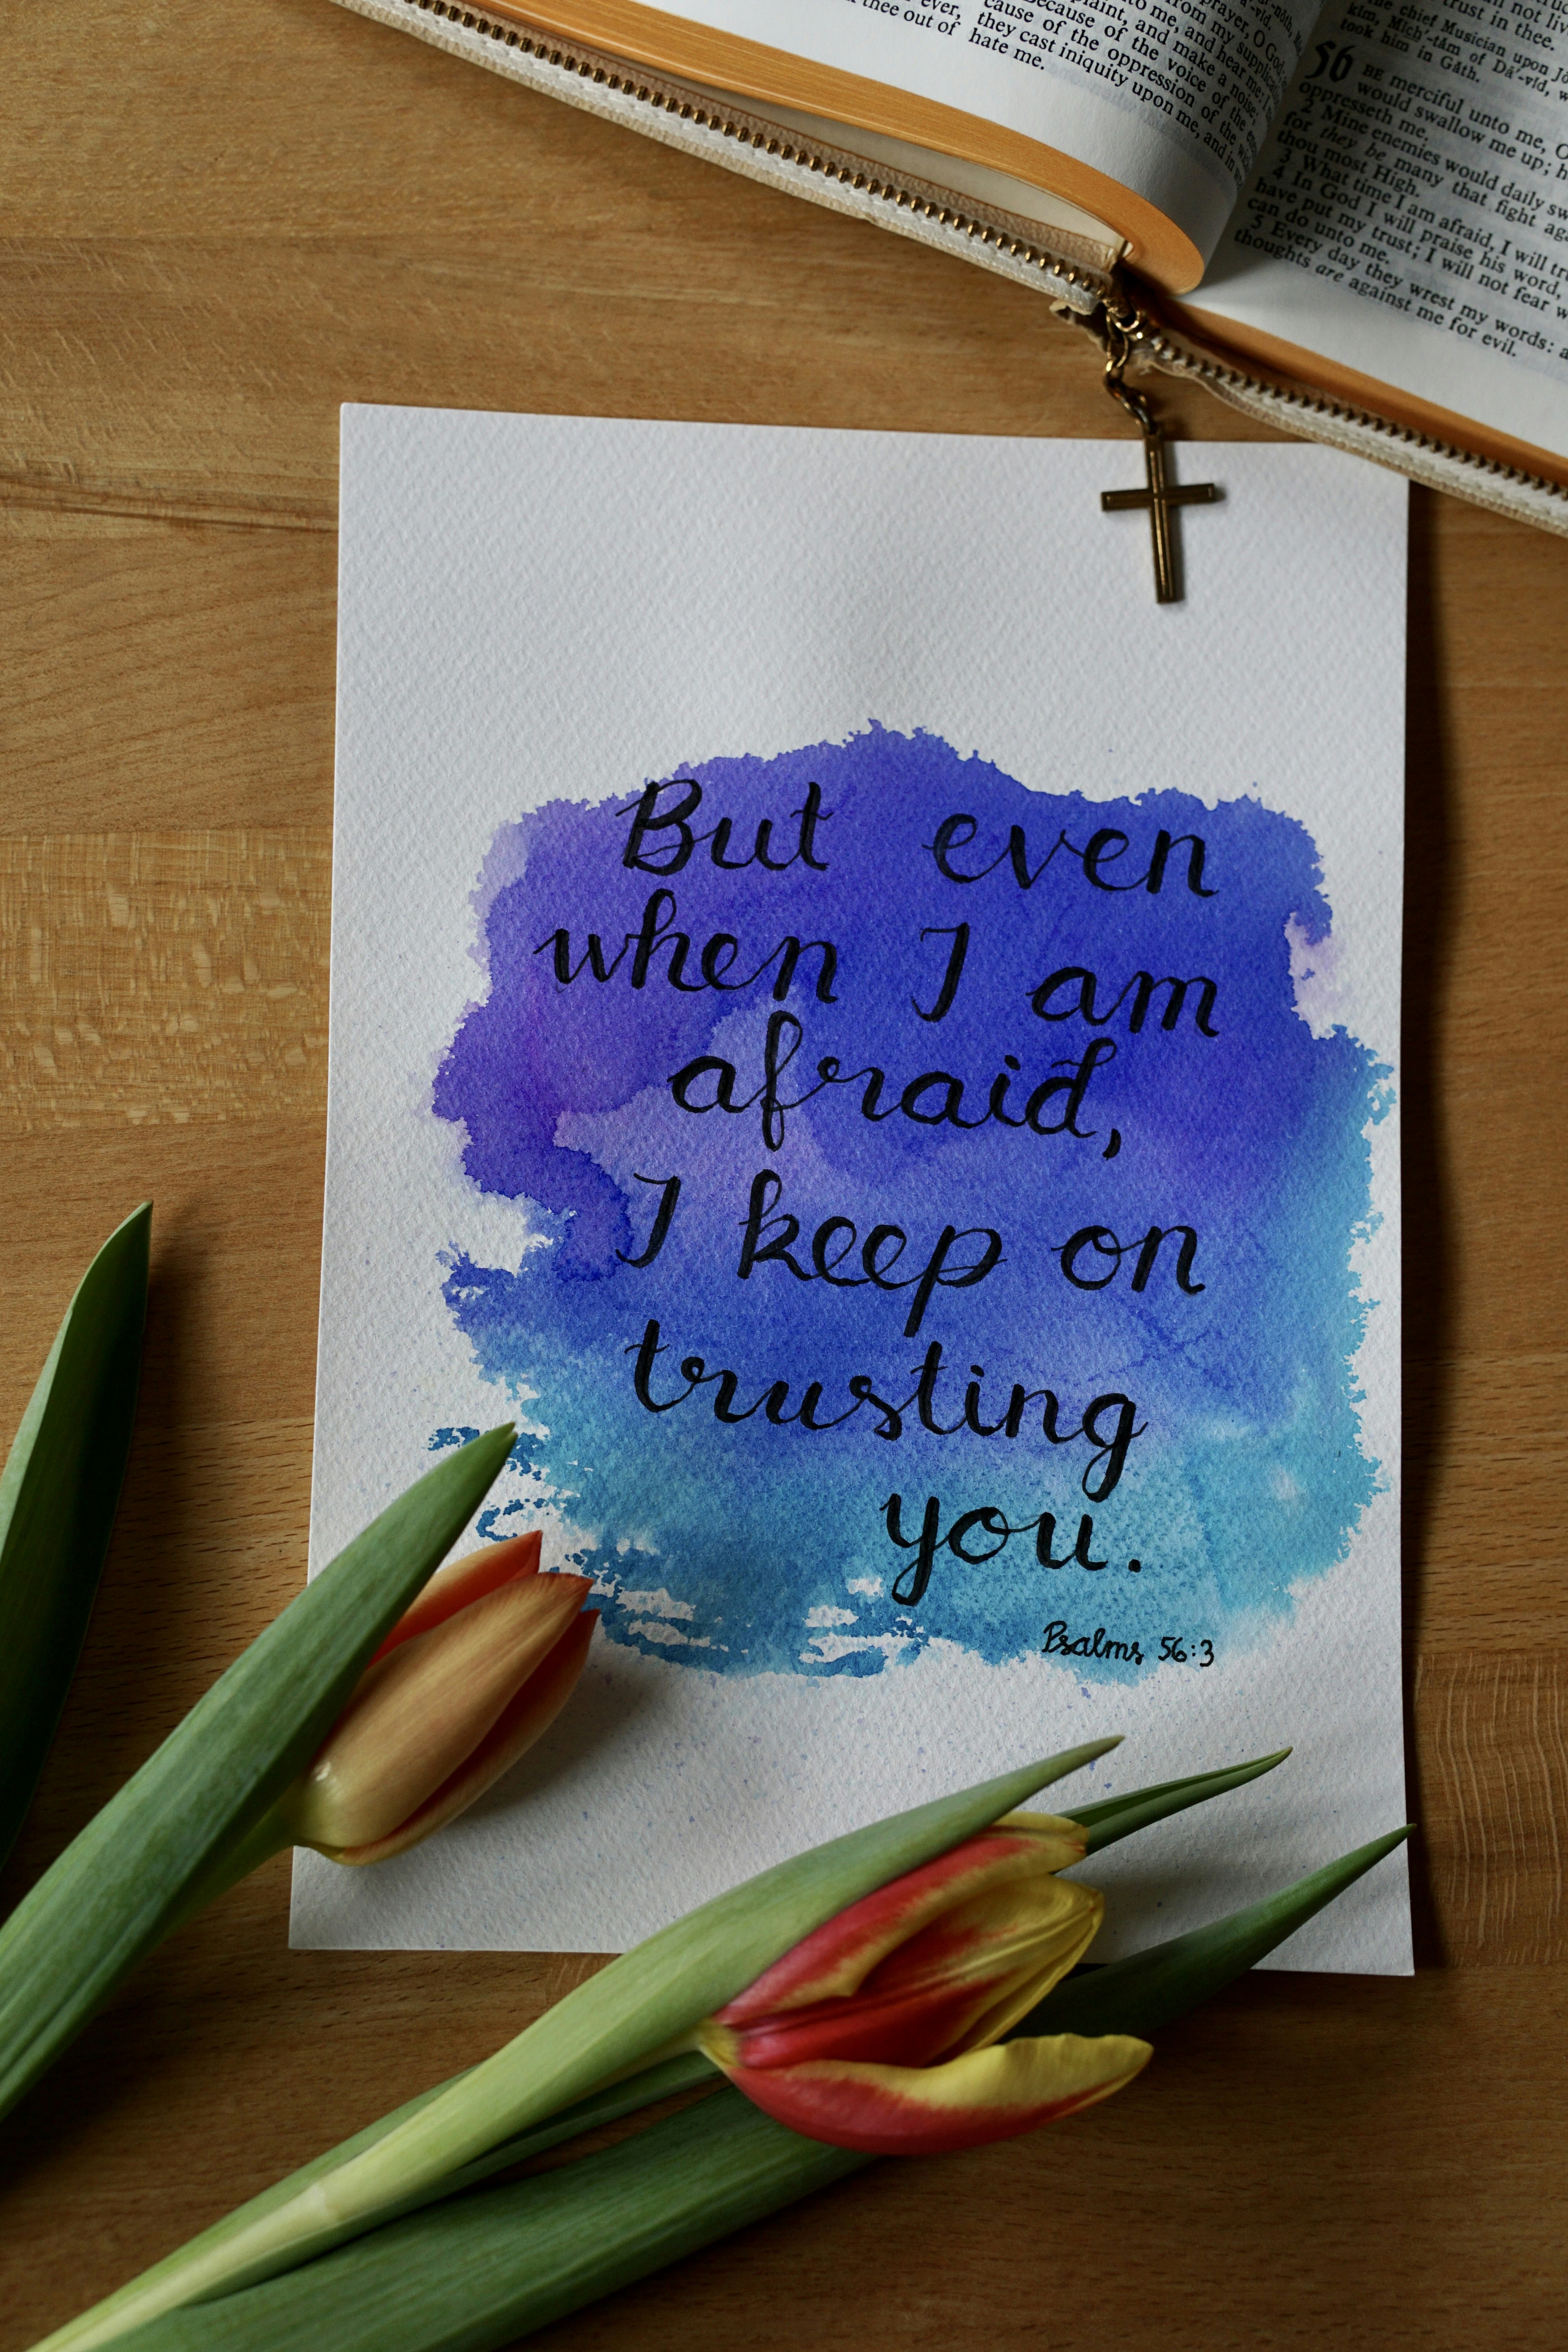 thee out of
ever, they cast iniquity upon me, and in
hate me.
cause of the oppression of the
Because of the voice of the
plaint, and make a noise;
to me, and hear me:
from my
prayer, O God;
not
trust in thee.
the chief Musician upon
took him in Găth.
56 BE merciful unto me, O
would swallow me up;
oppresseth me.
2 Mine enemies would daily
for they be many that fight
thou most High.
3 What time I am afraid, I will
4 In God I will praise his word,
have put my trust; I will not fear
can do unto me.
5 Every day they wrest my words:
thoughts are against me for evil.
But even
when I am
afraid,
I keep on
trusting
you.
Psalms 56:3